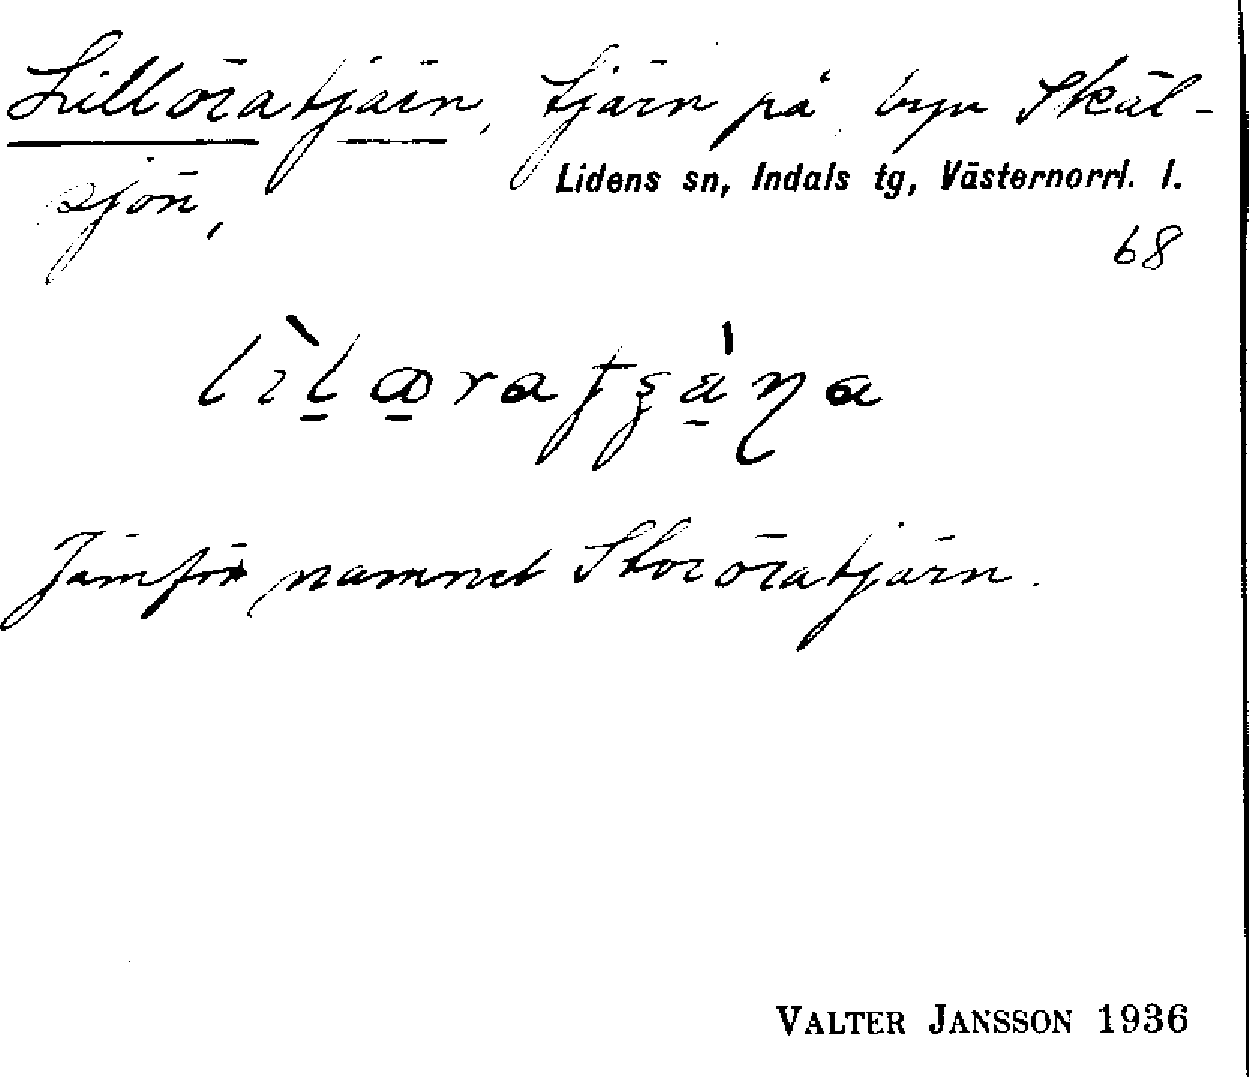 Lillöratjärn, tjärn på byn Skäl-
sjön,
Lidens sn, Indals tg, Västernorrl. l.
68
Jämför namnet Storöratjärn.
VALTER JANSSON 1936